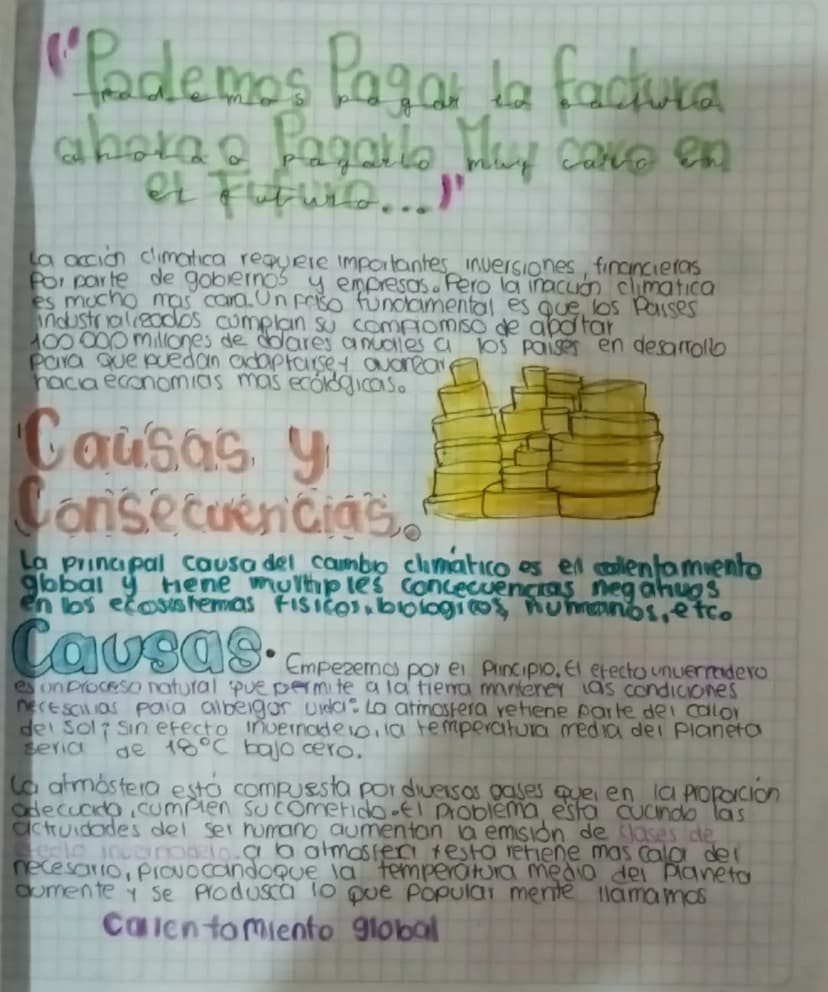 "Podemos Pagar la factura
ahora o Pagarlo Muy caro en
el Futuro..."
La acción climatica requiere importantes inversiones, financieras
Por parte de gobiernos y empresas. Pero la inacción climatica
es mucho mas cara. Un paso fundamental es que los Paises
industrialeados cumplan su compromiso de aportar
100 000 millones de dolares anuales a los paises en desarrollo
para que puedan adaptarse y avanzar
hacia economias mas ecólogicas.
Causas y
Consecuencias.
La principal causa del cambio climático es el calientamiento
global y tiene multiples concecuencias negativas
en los ecosistemas fisicos, biologicos, humanos, etc.
Causas. Empezemos por el Principio. El efecto invernadero
es un proceso natural que permite a la tierra mantener las condiciones
necesarias para albergar vida: La atmosfera retiene parte del calor
del sol; sin efecto invernadero, la temperatura media del Planeta
seria de 18°C bajo cero.
La atmósfera está compuesta por diversos gases que, en la proporción
adecuada, cumplen su cometido. El problema esta cuando las
actividades del ser humano aumentan la emisión de Gases de
efecto invernadero a la atmosfera y esta retiene mas calor del
necesario, provocando que la temperatura media del Planeta
aumente y se Produsca lo que Popular mente llamamos
Calentamiento global